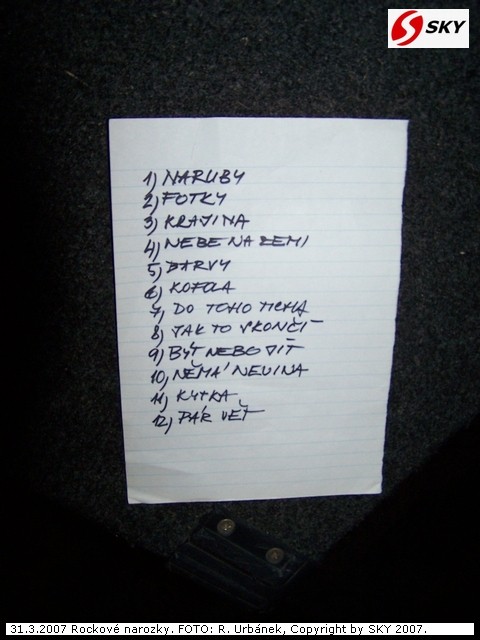 SKY
1) NARUBY
2) FOTKY
3) KRAJINA
4) NEBE NA ZEMI
5) BARVY
6) KOFOLA
7) DO TOHO TICHA
8) JAK TO SKONČÍ
9) BÝT NEBO JÍT
10) NĚMÁ NEVINA
11) KYTKA
12) PÁR VĚT
31.3.2007 Rockové narozky. FOTO: R. Urbánek, Copyright by SKY 2007.